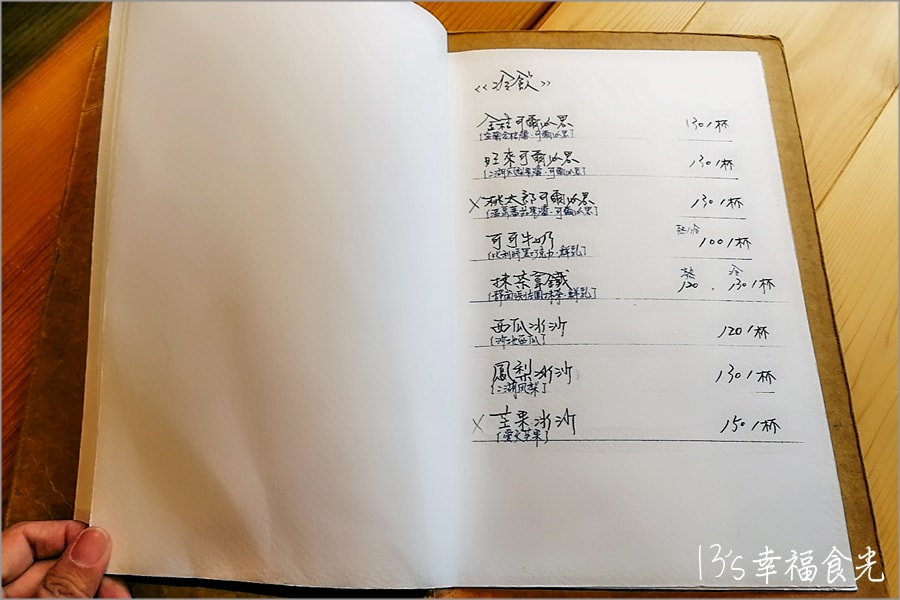 <<冷飲>>
金桔可爾必思 130/杯
(宜蘭金桔醬.可爾必思)
旺來可爾必思 130/杯
(二湖鳳梨果醬.可爾必思)
×桃太郎可爾必思 130/杯
(溫室蕃茄果醬.可爾必思)
可可牛奶 熱/冷 100/杯
(比利時黑巧克力.鮮乳)
抹茶拿鐵 熱120, 冷130/杯
抹茶.鮮乳)
西瓜冰沙 120/杯
西瓜)
鳳梨冰沙 130/杯
(二湖鳳梨)
×芒果冰沙 150/杯
(愛文芒果)
13's幸福食光